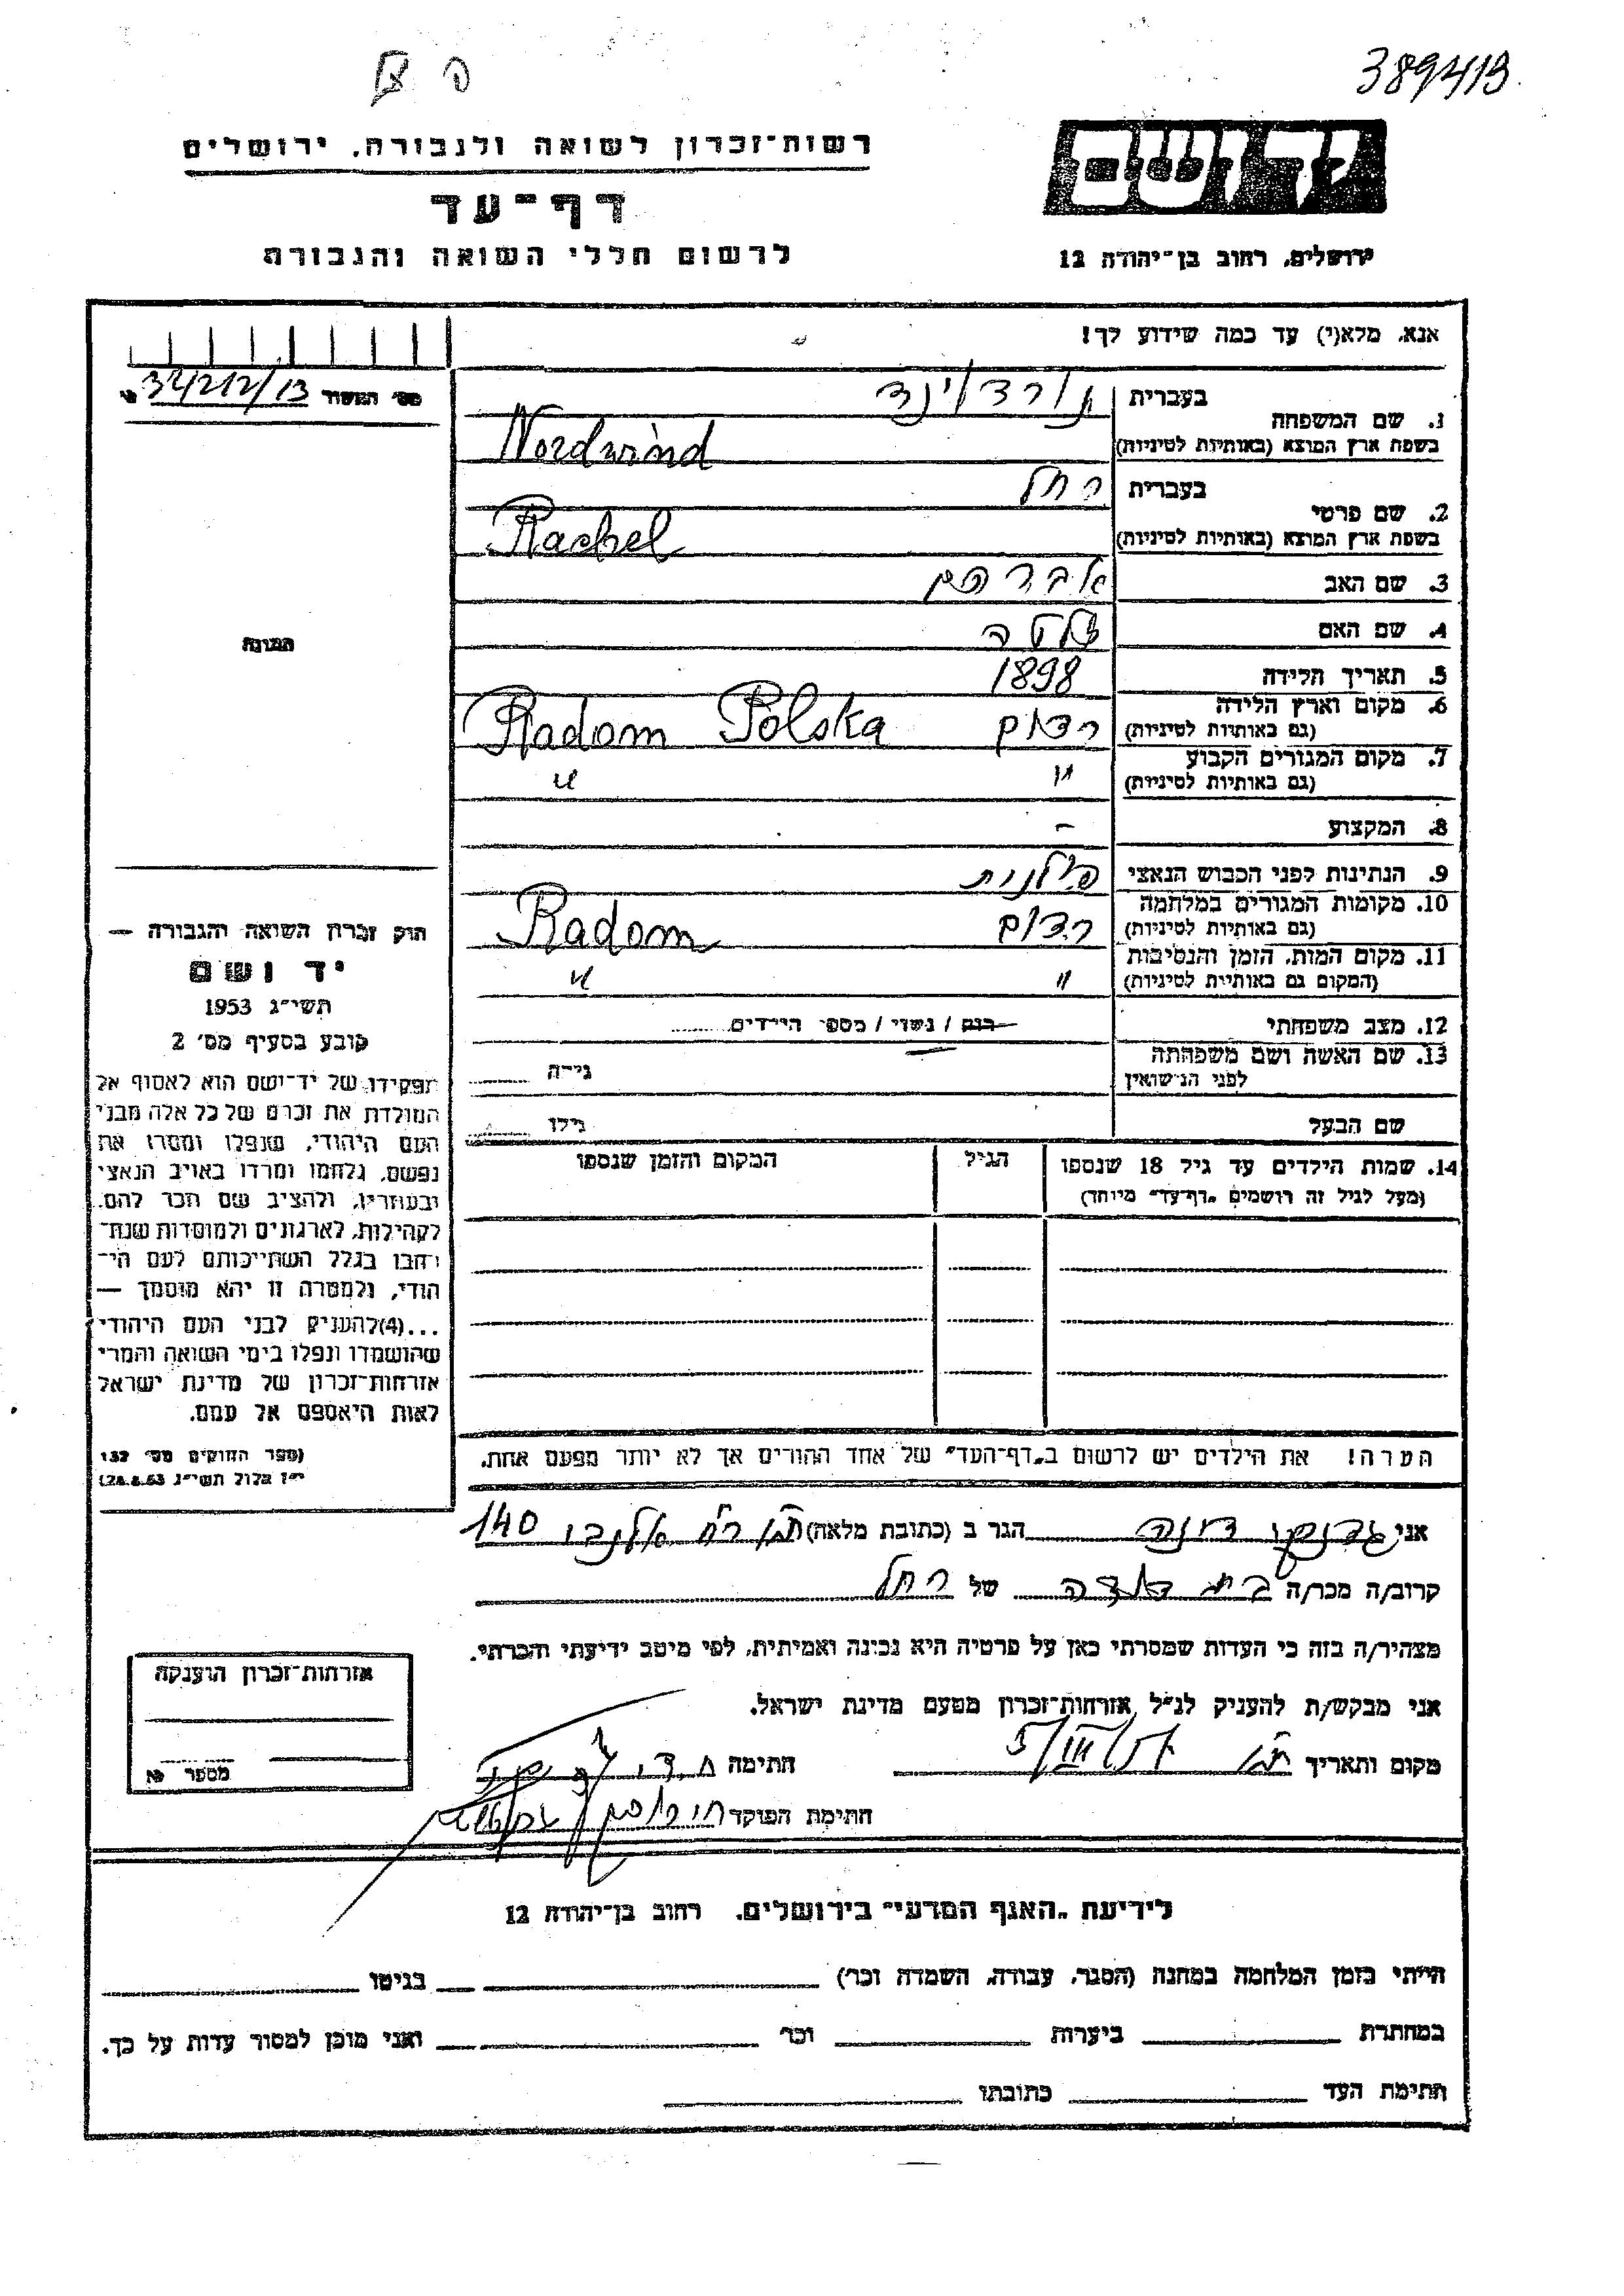 389413
רשות־זכרון לשואה ולגבורה, ירושלים
דף־עד
לרשום חללי השואה והגבורה
יד ושם
ירושלים, רחוב בן־יהודה 12
אנא, מלא(י) עד כמה שידוע לך!
מס' תיקי 34212/13
1. שם המשפחה
בעברית נורדוינד
בשפת ארץ המוצא (באותיות לטיניות) Nordwind
2. שם פרטי
בעברית רחל
בשפת ארץ המוצא (באותיות לטיניות) Rachel
3. שם האב אברהם
4. שם האם
5. תאריך הלידה 1898
6. מקום וארץ הלידה
(גם באותיות לטיניות) רדום Radom Polska
7. מקום המגורים הקבוע
(גם באותיות לטיניות) " "
8. המקצוע –
9. הנתינות לפני הכבוש הנאצי פולנית
10. מקומות המגורים במלחמה
(גם באותיות לטיניות) רדום Radom
11. מקום המות, הזמן והנסיבות
(המקום גם באותיות לטיניות) " "
12. מצב משפחתי רווק / נשוי / מספר הילדים
13. שם האשה ושם משפחתה
לפני הנישואין גילה
שם הבעל גילו
14. שמות הילדים עד גיל 18 שנספו
(מעל לגיל זה רושמים „דף־עד" מיוחד)
הגיל
המקום והזמן שנספו
הערה! את הילדים יש לרשום ב„דף־העד" של אחד ההורים אך לא יותר מפעם אחת.
התמונה
חוק זכרון השואה והגבורה —
יד ושם
תשי"ג 1953
קובע בסעיף מס' 2
תפקידו של יד־ושם הוא לאסוף אל
המולדת את זכרם של כל אלה מבני
העם היהודי, שנפלו ומסרו את
נפשם, נלחמו ומרדו באויב הנאצי
ובעוזריו, ולהציב שם וזכר להם,
לקהילות, לארגונים ולמוסדות שנח־
רבו בגלל השתייכותם לעם הי־
הודי, ולמטרה זו יהא מוסמך —
...(4)להעניק לבני העם היהודי
שהושמדו ונפלו בימי השואה והמרי
אזרחות־זכרון של מדינת ישראל
לאות היאספם אל עמם.
(ספר החוקים מס' 132
י"ז אלול תשי"ג 28.8.53)
אני הגר ב (כתובת מלאה) 140
קרוב/ה מכר/ה בת דודה של רחל
מצהיר/ה בזה כי העדות שמסרתי כאן על פרטיה היא נכונה ואמיתית, לפי מיטב ידיעתי והכרתי.
אני מבקש/ת להעניק לנ"ל אזרחות־זכרון מטעם מדינת ישראל.
מקום ותאריך חתימה
חתימת הפוקד
אזרחות־זכרון הוענקה
מספר
לידיעת „האגף המדעי" בירושלים, רחוב בן־יהודה 12
הייתי בזמן המלחמה במחנה (הסגר, עבודה, השמדה וכו') בגיטו
במחתרת ביערות וכו' ואני מוכן למסור עדות על כך.
חתימת העד כתובתו